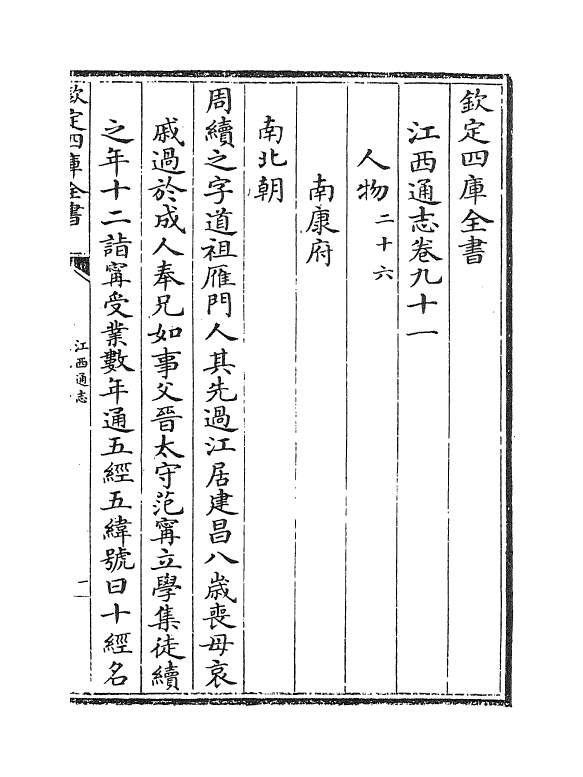 欽定四庫全書
江西通志卷九十一
人物二十六
南康府
南北朝
周續之字道祖雁門人其先過江居建昌八歲喪母哀
戚過於成人奉兄如事父晉太守范甯立學集徒續
之年十二詣甯受業數年通五經五緯號曰十經名
欽定四庫全書
江西通志
一